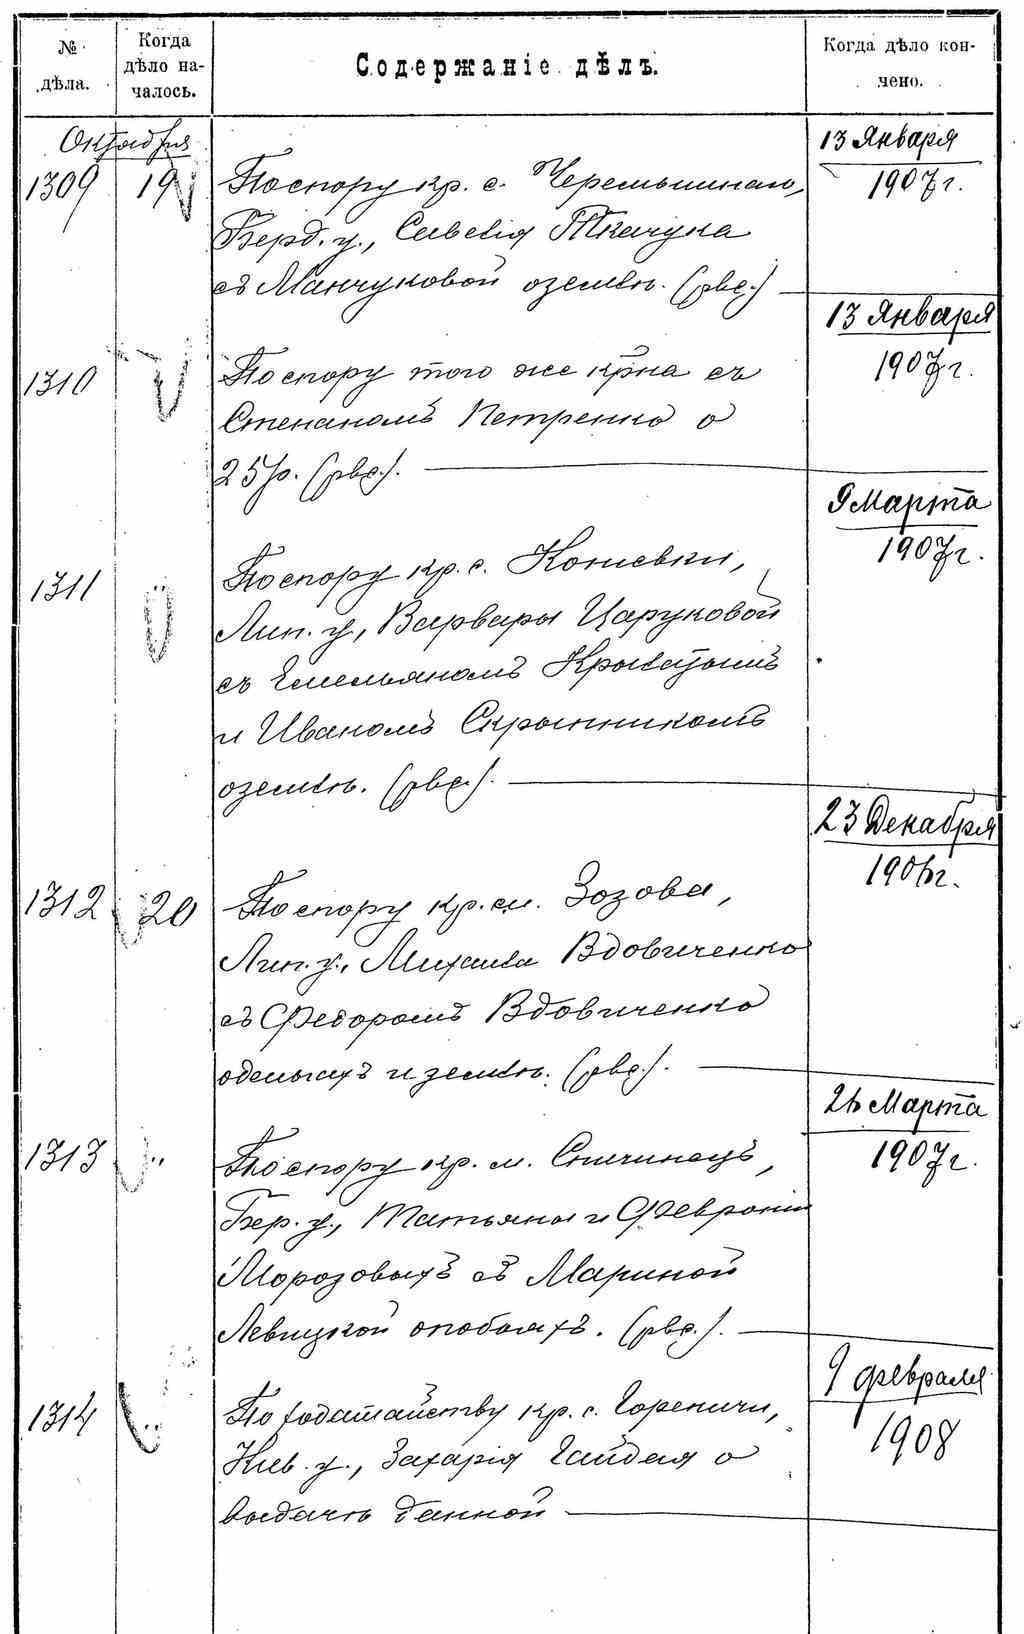 № дѣла.
Когда дѣло началось.
Содержаніе дѣлъ.
Когда дѣло кончено.
Октября
1309 19 По спору кр. с. Черемошная, 13 Января
Берд. у., Савелія Ткачука 1907 г.
съ Манчуковой о землѣ. (рвс.)
1310 " По спору того же кр-на съ 13 Января
Степаномъ Петренко о 1907 г.
25 р. (рвс.).
1311 " По спору кр. с. Конѣевки, 9 Марта
Лип. у., Варвары Царуковой 1907 г.
съ Емельяномъ
и Иваномъ Скрынникомъ
о землѣ. (рвс.).
1312 20 По спору кр. с. Зозова, 23 Декабря
Лип. у., Михаила Вдовиченко 1906 г.
съ Федоромъ Вдовиченко
о деньгахъ и землѣ. (рвс.).
1313 " По спору кр. м. Спичинецъ, 26 Марта
Бер. у., Татьяны и Февроніи 1907 г.
Морозовыхъ съ Мариной
Левицкой о побояхъ. (рвс.).
1314 " По ходатайству кр. с. Гореничи, 9 Февраля
Кіев. у., Захарія Гайдая о 1908
выдачѣ данной